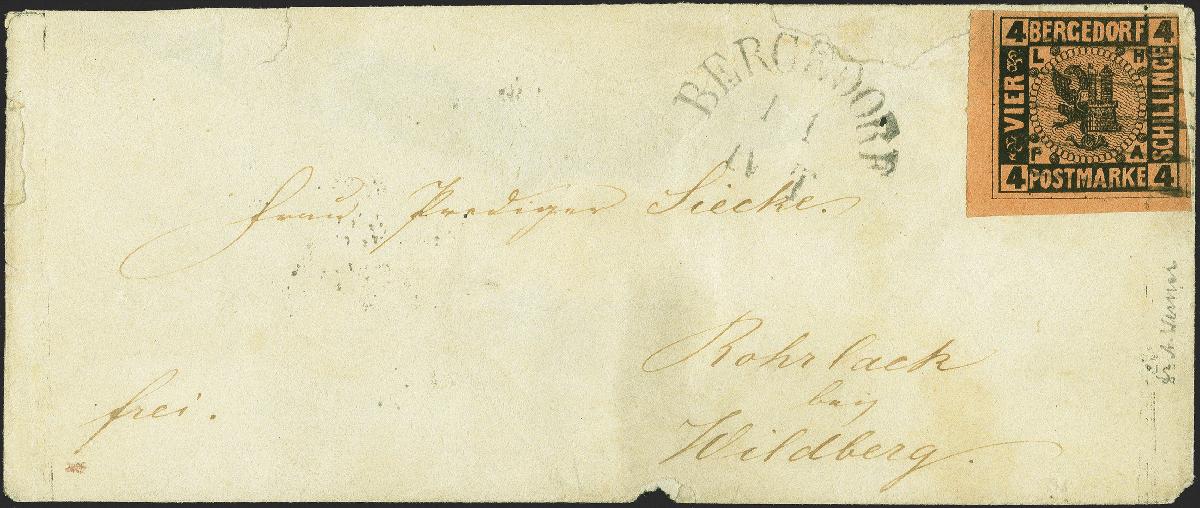 4 BERGEDORF 4
L H
VIER
SCHILLINGE
P A
4 POSTMARKE 4
BERGEDORF
Frau Prediger Siecke.
Rohrlack
bey
Wildberg.
frei.